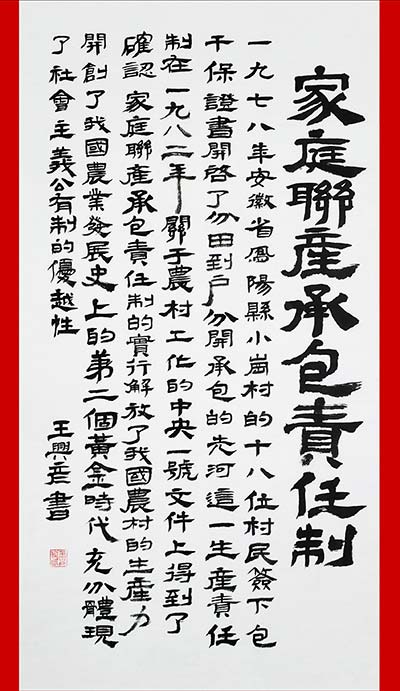 家庭聯產承包責任制
一九七八年安徽省鳳陽縣小崗村的十八位村民簽下包
干保證書開啓了分田到戶分開承包的先河這一生產責任
制在一九八二年關于農村工作的中央一號文件上得到了
確認家庭聯產承包責任制的實行解放了我國農村的生產力
開創了我國農業發展史上的第二個黃金時代充分體現
了社會主義公有制的優越性
王興彥書